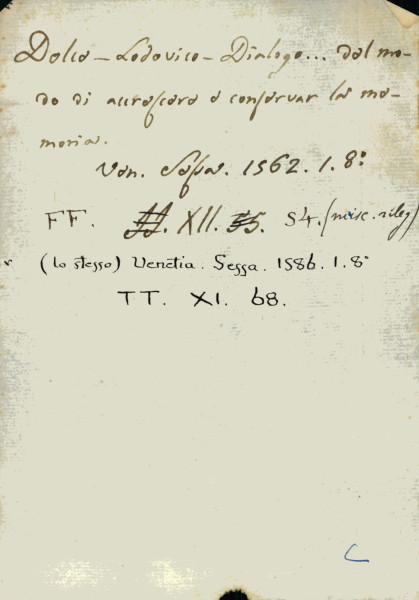 Dolce - Lodovico - Dialogo... del mo-
do di accrescere e conservar la me-
moria.
Ven. Sessa. 1562. 1. 8:
FF. XII. 54. (misc. rileg)
(lo stesso) Venetia. Sessa. 1586. 1. 8°
TT. XI. 68.